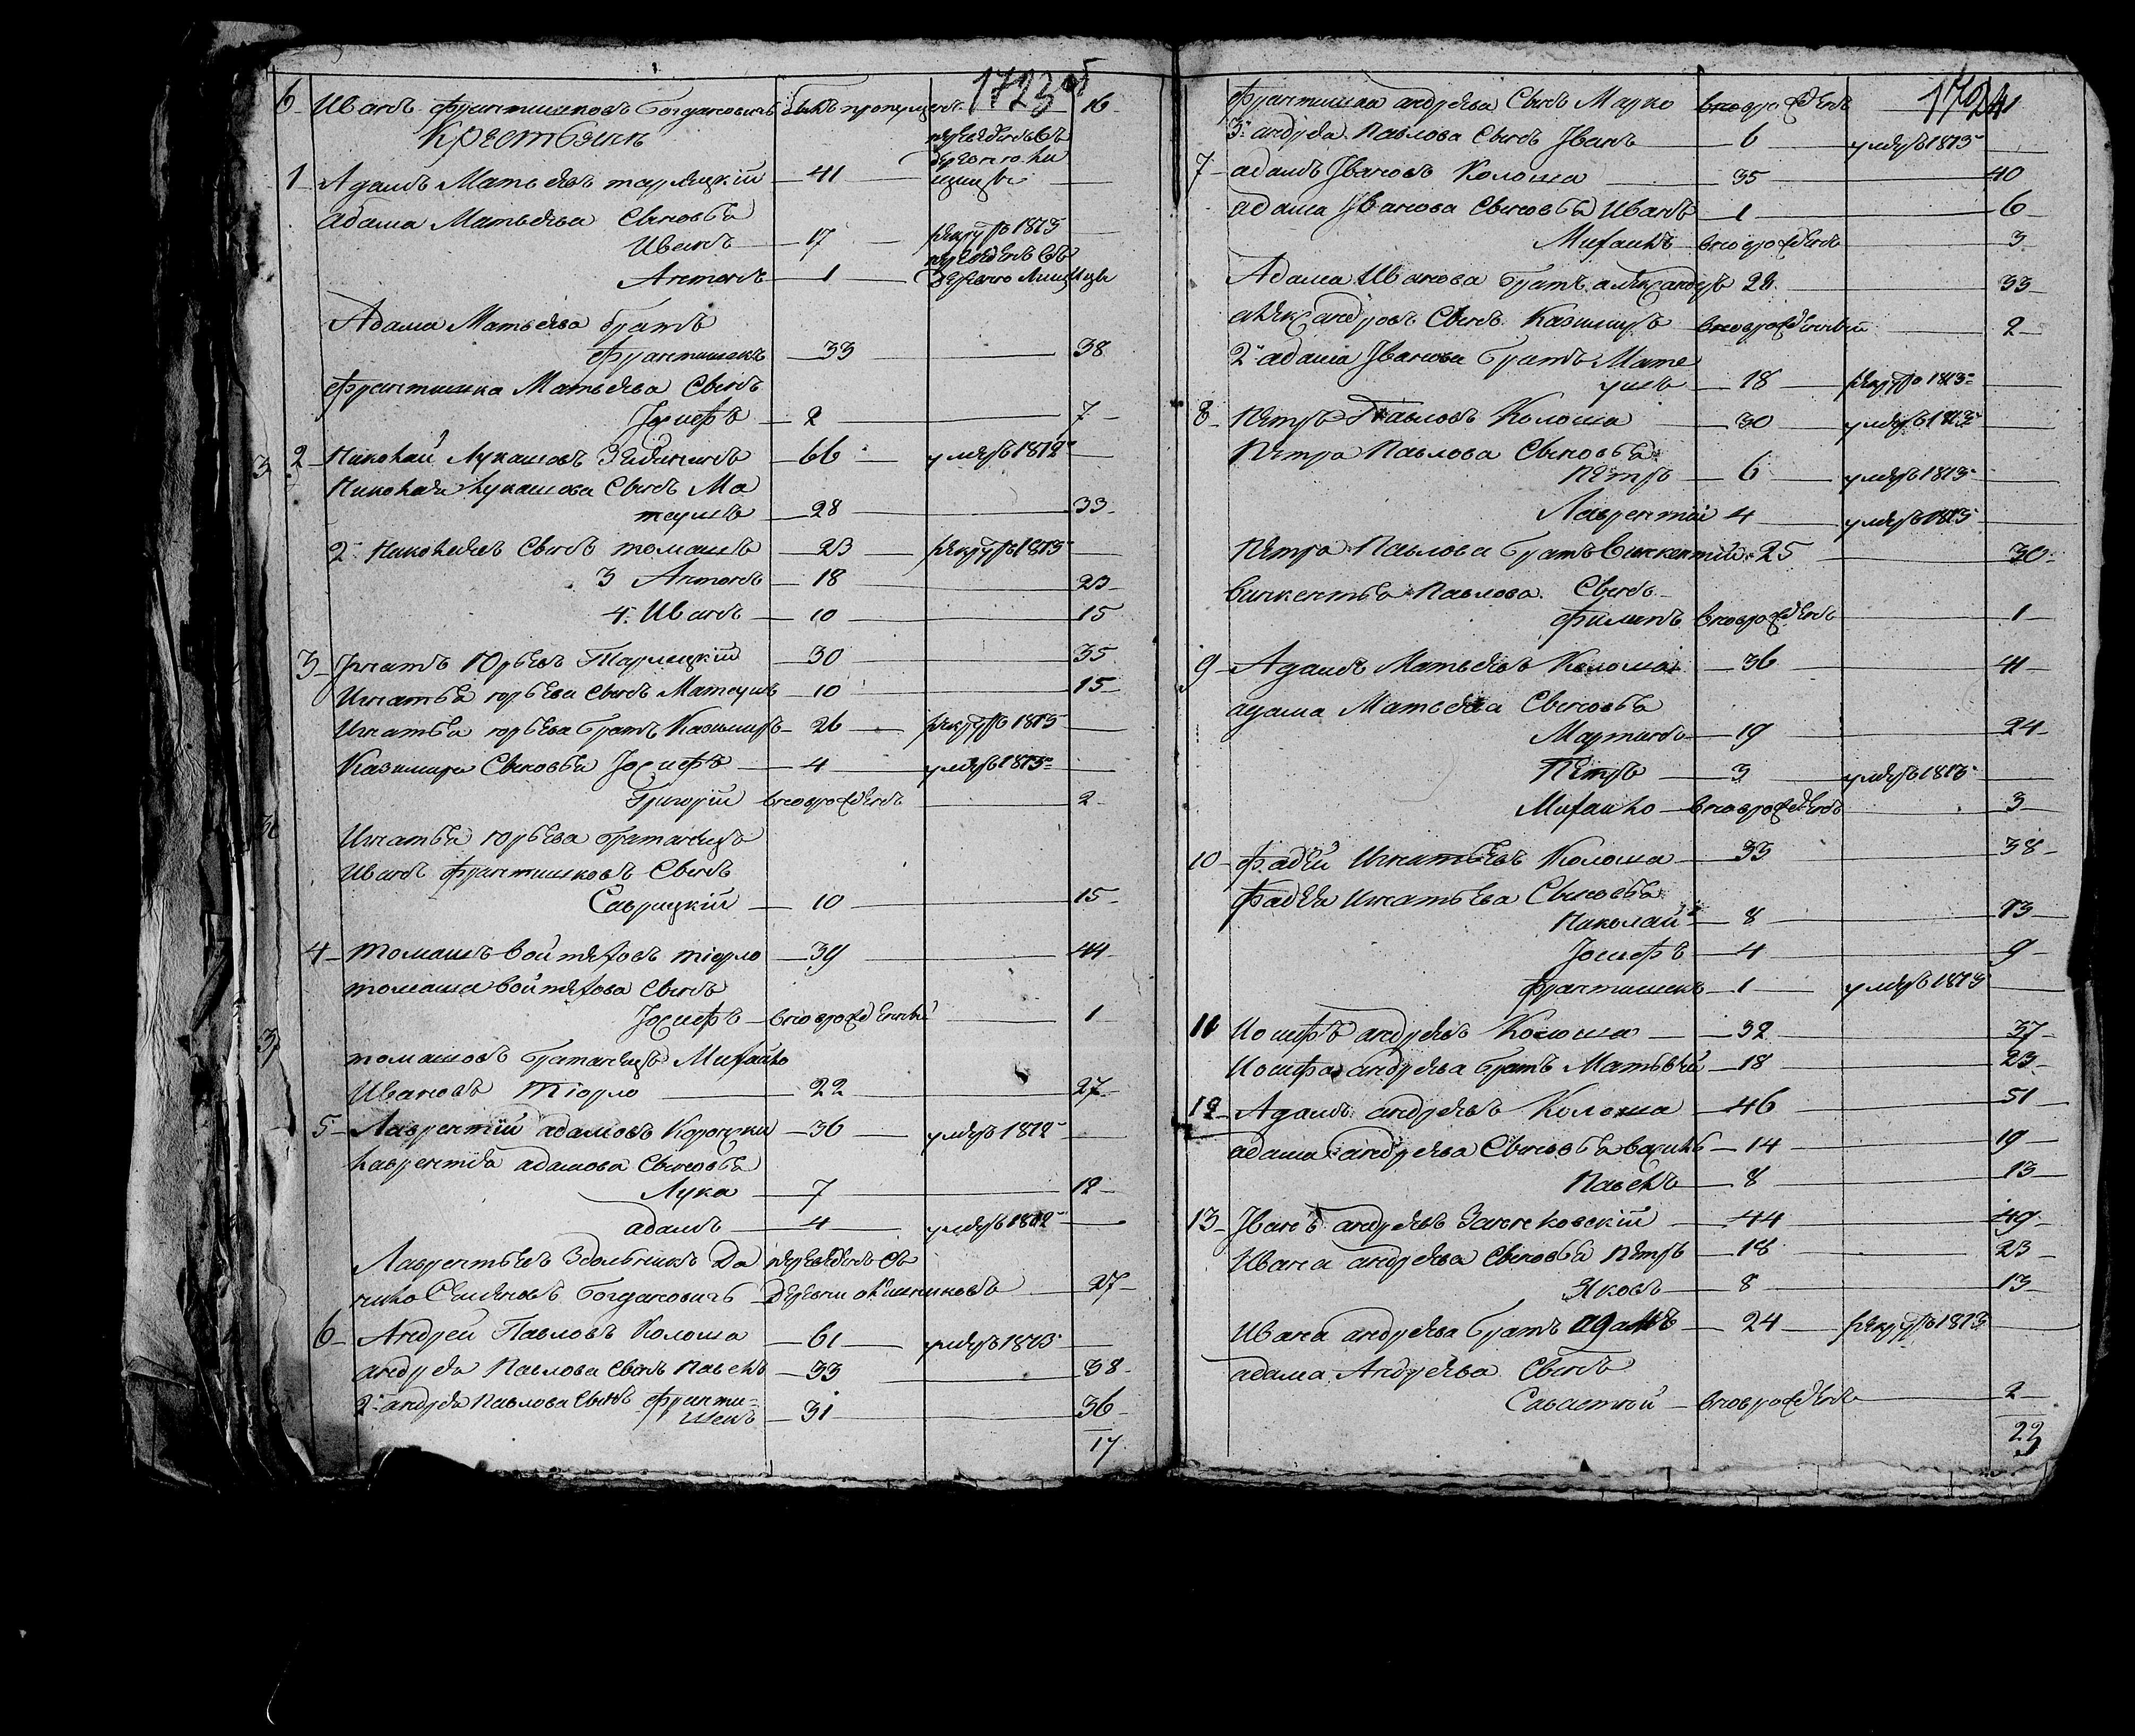 1723 об
6 Иванъ Франтишковъ Богдановичъ былъ пропущенъ 16
Крестьянъ
1 Адамъ Матвѣевъ 41 переведенъ въ
Адама Матвѣева Сыновья
Иванъ 17 рекрутъ 1813
Антонъ 1 переведенъ въ
Адама Матвѣева братъ
Франтишекъ 33 38
Франтишка Матвѣева Сынъ
Іосифъ 2 7
2 Николай Лукашовъ 66 умеръ 1812
Николая Лукашова Сынъ Ма
теушъ 28 33
2 Николаевъ Сынъ Томашъ 23 рекрутъ 1813
3 Антонъ 18 23
4 Иванъ 10 15
3 Игнатъ Юрьевъ Тарлецкій 30 35
Игнатья Юрьева Сынъ Матеушъ 10 15
Игнатья Юрьева братъ Казимиръ 26 рекрутъ 1813
Казимира Сыновья Іосифъ 4 умеръ 1813
Григорій вноврожденъ 2
Игнатья Юрьева братанецъ
Иванъ Франтишковъ Сынъ
Саврицкій 10 15
4 Томашъ Войтеховъ Тіорло 39 44
Томаша Войтехова Сынъ
Іосифъ вноврожденный 1
Томашовъ братанецъ Михайло
Ивановъ Тіорло 22 27
5 Лаврентій Адамовъ 36 умеръ 1812
Лаврентія Адамова Сыновья
Лука 7 12
Адамъ 4 умеръ 1812
Лаврентьевъ Здольникъ Да переведенъ съ
нило Семеновъ Богдановичъ деревни 27
6 Андрей Павловъ Колоша 61 умеръ 1813
Андрея Павлова Сынъ Павелъ 33 38
2 Андрея Павлова Сынъ Франти=
шекъ 31 36
17
1724
Франтишка Андреева Сынъ Марко вноврожденъ 1
3 Андрея Павлова Сынъ Іванъ 6 умеръ 1813
7 Адамъ Івановъ Колоша 35 40
Адама Іванова Сыновья Иванъ 1 6
Михаилъ вноврожденъ 3
Адама Иванова братъ Александръ 28 33
Александровъ Сынъ Казимиръ вноврожденный 2
2 Адама Іванова братъ Мате
ушъ 18 рекрутъ 1813
8 Петръ Павловъ Колоша 30 умеръ 1813
Петра Павлова Сыновья
Петръ 6 умеръ 1813
Лаврентій 4 умеръ 1813
Петра Павлова братъ Винкентій 25 30
Винкентья Павлова Сынъ
Филипъ вноврожденъ 1
9 Адамъ Матвѣевъ Колоша 36 41
Адама Матвѣева Сыновья
Мартинъ 19 24
Петръ 3 умеръ 1813
Михайло вноврожденъ 3
10 Фадей Игнатьевъ Колоша 33 38
Фадея Игнатьева Сыновья
Николай 8 13
Іосифъ 4 9
Франтишекъ 1 умеръ 1813
11 Иосифъ Андреевъ Колоша 32 37
Иосифа Андреева братъ Матвѣй 18 23
12 Адамъ Андреевъ Колоша 46 51
Адама Андреева Сыновья Василь 14 19
Павелъ 8 13
13 Іванъ Андреевъ Занковскій 44 49
Ивана Андреева Сыновья Петръ 18 23
Яковъ 8 13
Ивана Андреева братъ Адамъ 24 рекрутъ 1813
Адама Андреева Сынъ
Савастей вноврожденъ 2
22